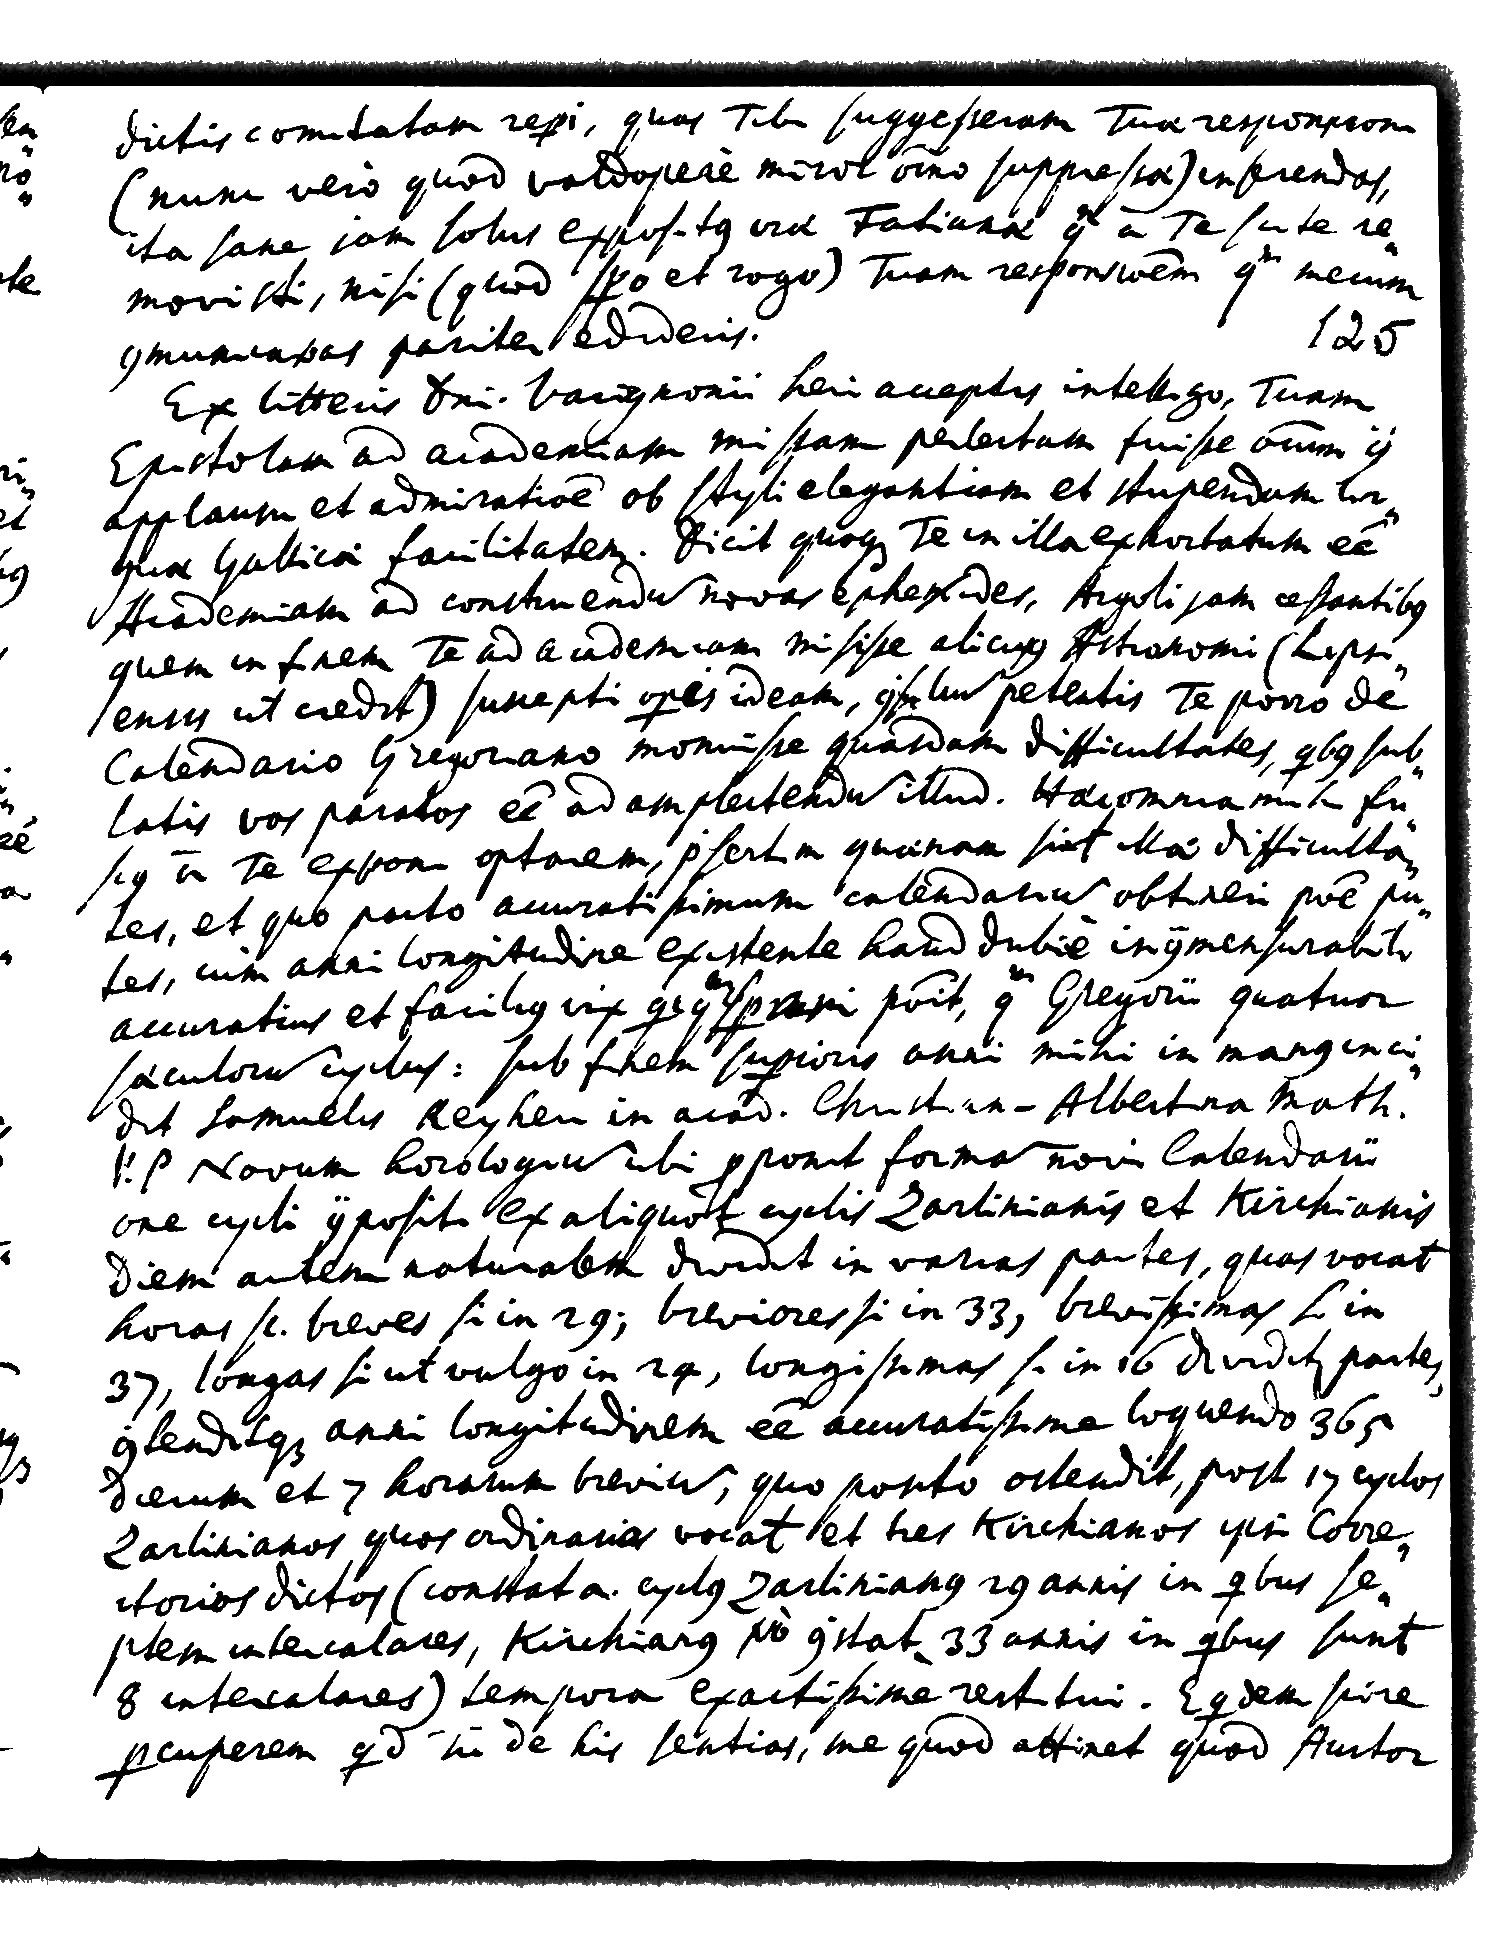 dictis comitatam reperi, quas Tibi suggesseram Tuæ responsioni
(nunc verò quod valdopere miror om̄no suppressæ) inserendas,
ita sane jam solus expositus iræ Fatianæ qm̄ à Te scite re„
movisti, nisi (quod spero et rogo) Tuam responsioēm qm̄ mecum
communicabas pariter edideris. 125
Ex litteris Dni. Varignonii heri acceptis intelligo, Tuam
Epistolam ad academiam missam perlectam fuisse om̄um cū
applausu et admiratioē ob styli elegantiam et stupendam lin„
guæ Gallicæ facilitatem. Dicit quoq; Te in illa exhortatum eē
Academiam ad construendū novas ephemerides, Argoli jam cessantibus
quem in finem Te ad academiam misisse alicujus Astronomi (Lipsi„
ensis ut credit) suscepti operis ideam, consiliū petentis Te porro de
Calendario Gregoriano monuisse quasdam difficultates, qbus sub„
latis vos paratos eē ad amplectendū illud. Hæc omnia mihi fu„
sius à Te exponi optarem, pſertim quænam sint illæ difficulta„
tes, et quo pacto accuratissimum calendariū obtineri poſſe pu„
tes, cum anni longitudine existente haud dubiè incommensurabili
accuratius et facilius vix qcqm̄ sperari pōit, qm̄ Gregorii quatuor
sæculorū cyclus: sub finem superioris anni mihi in manus inci„
dit Samuelis Reyheri in acad. Christian-Albertina Math.
P.P Novum horologiū ubi proponit formā novi Calendarii
one cycli compositi ex aliquot cyclis Zarlinianis et Kirchianis
Diem autem naturalem dividit in varias partes, quas vocat
horas sc. breves si in 29; breviores si in 33, brevissimas si in
37, longas si ut vulgo in 24, longissimas si in 16 dividitur partes,
contenditq; anni longitudinem eē accuratissime loquendo 365
dierum et 7 horarum breviū; quo posito ostendit, post 17 cyclos
Zarlinianos quos ordinarios vocat et tres Kirchianos ipsi Corre„
ctorios dictos (constat a. cyclus Zarlinianus 29 annis in qbus se„
ptem intercalares, Kirchianus vò constat 33 annis in qbus sunt
8 intercalares) tempora exactissime restitui. Eqdem scire
percuperem qd tū de his sentias, me quod attinet quod Auctor